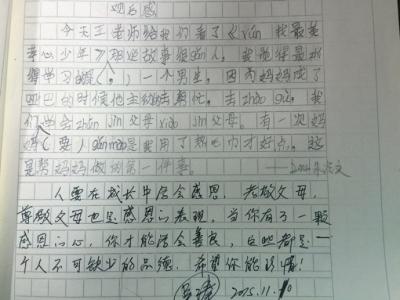 观后感
今天王老师给我们看了《xún 我最美
孝心少年》那些故事很gǎn人。我觉得最
得学习的是( )一个男生，因为妈妈成了
的时候他主动去帮忙，去zhào gù。我
们学会zhūn jìn父母xiào jìn父母。有一次妈
妈 gǎn mào是我用了热 才好点。这
是帮妈妈做的第一件事。
人要在成长中学会感恩。孝敬父母，
尊敬父母也是感恩的表现。当你有了一颗
感恩的心，你才能学会善良，这些都是一
个人不可缺少的品德。希望你能
2015.11.10